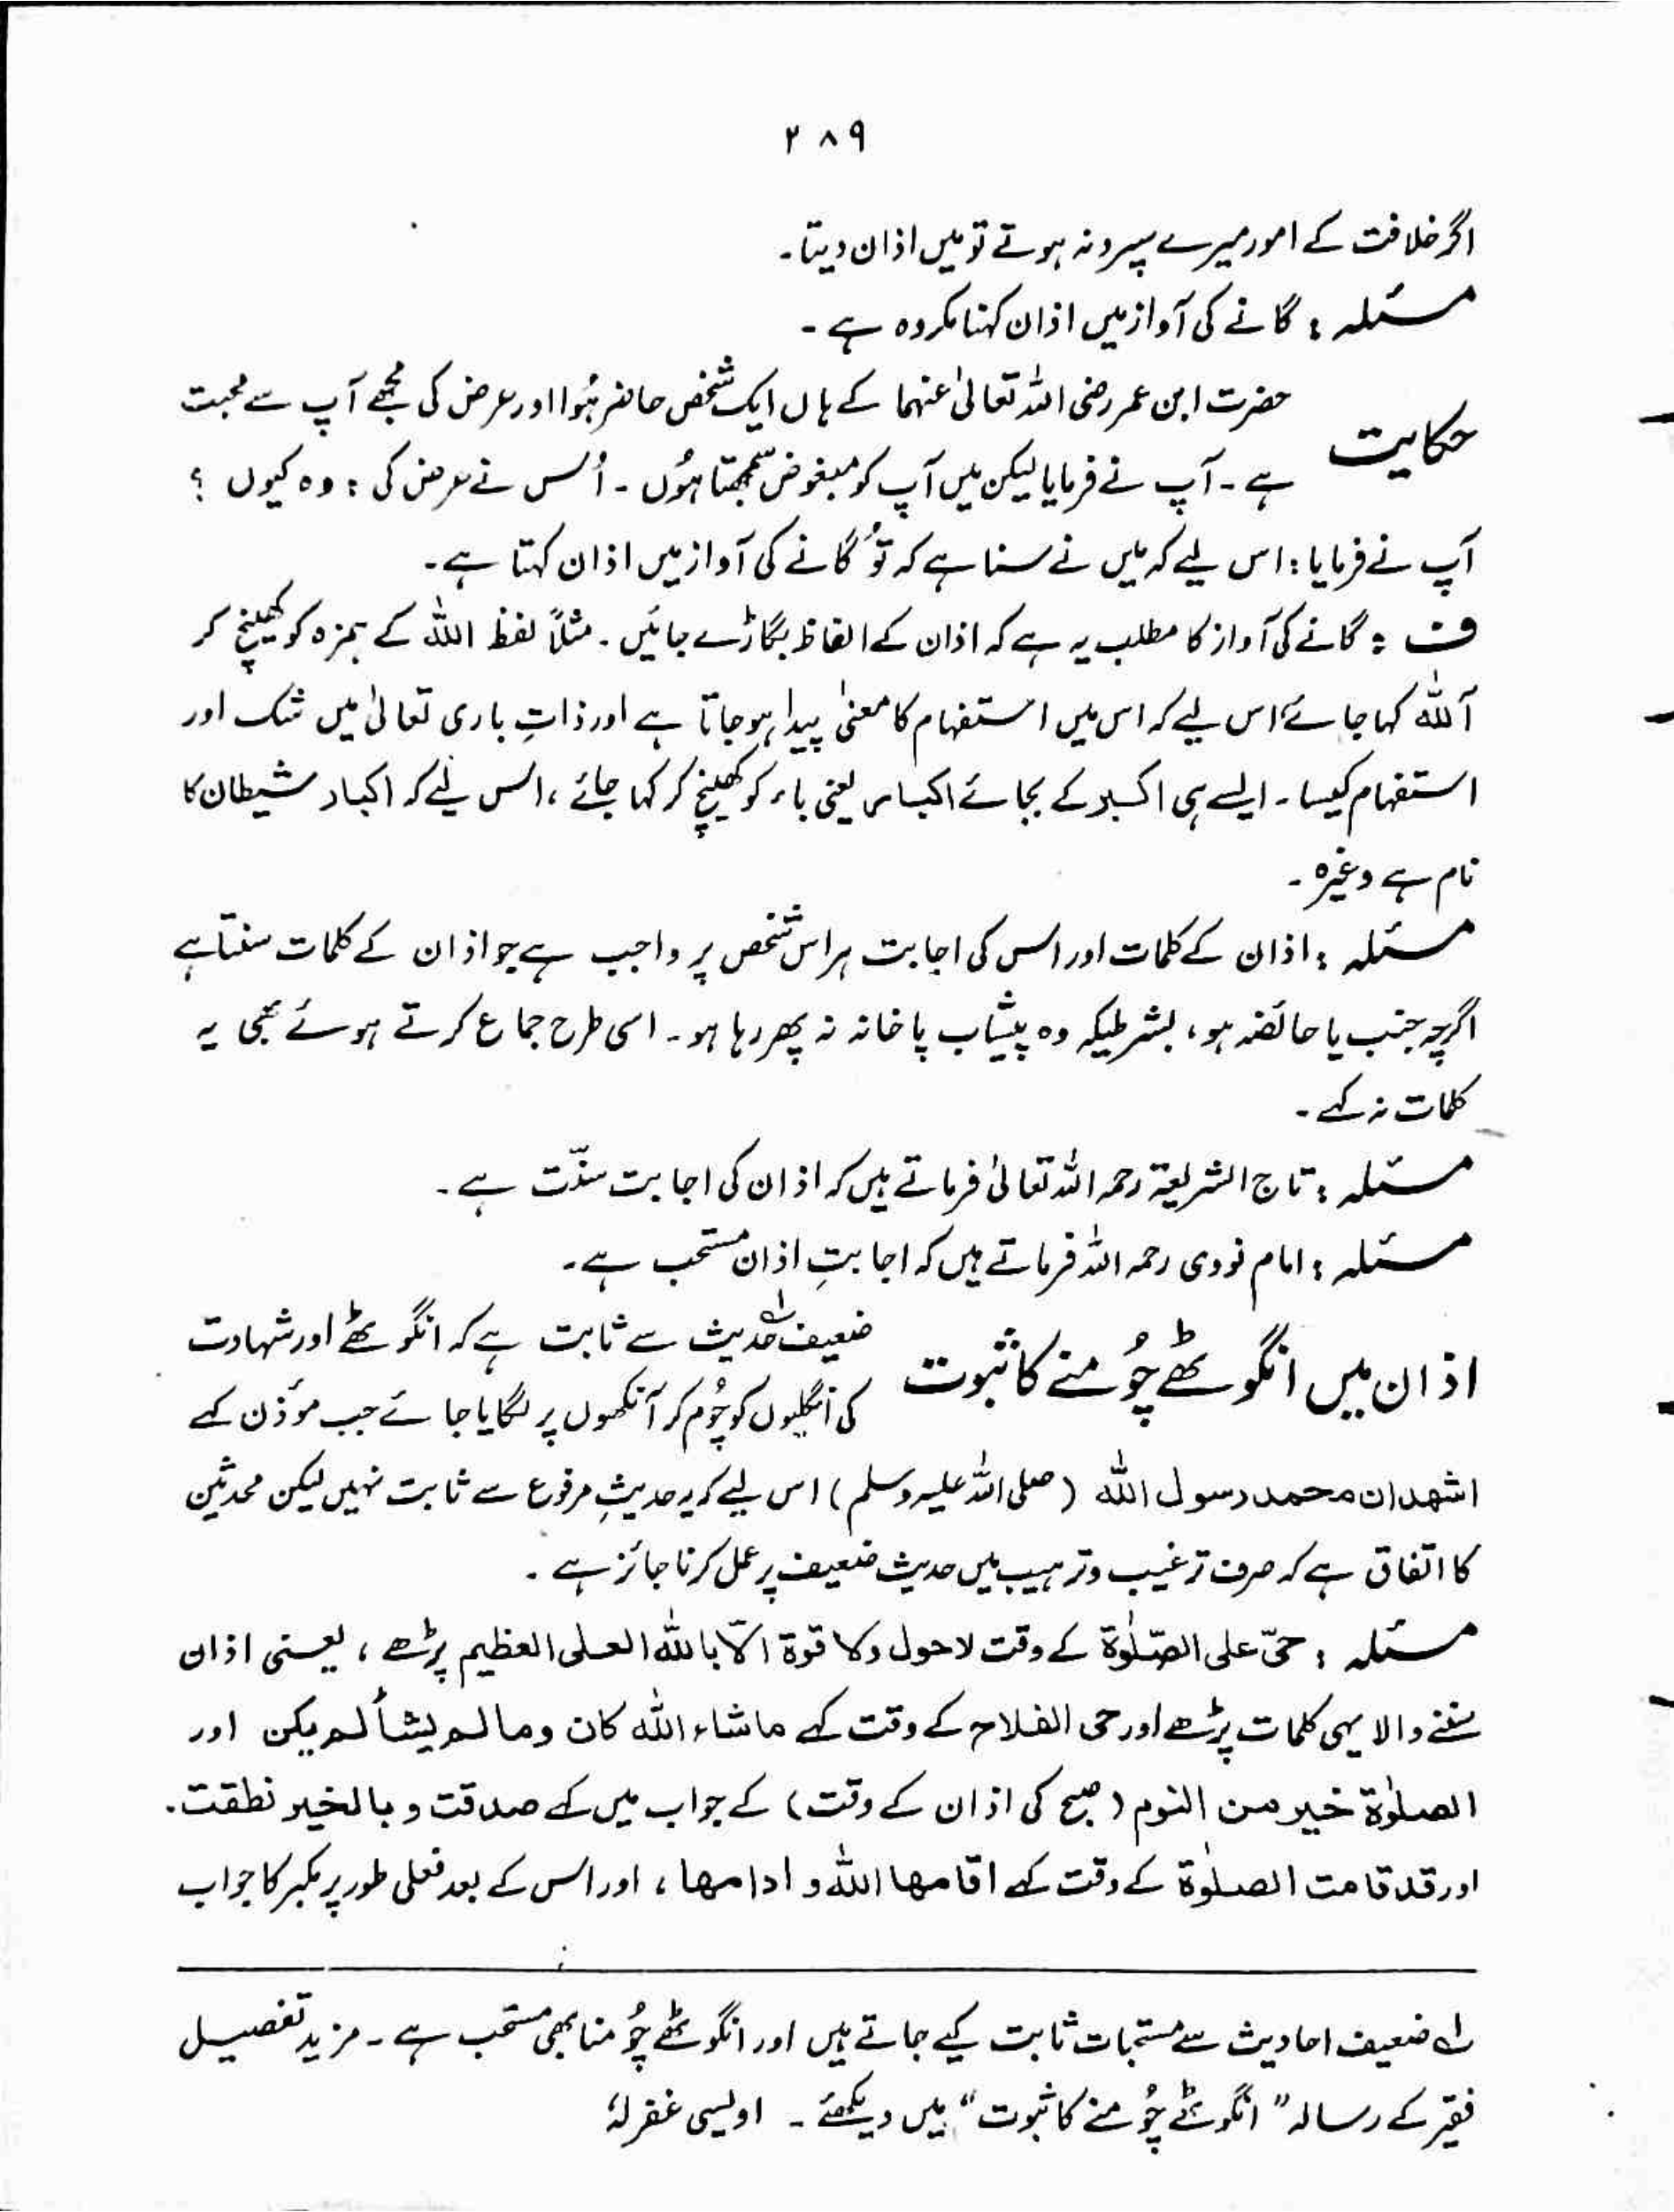 ۲۸۹
اگر خلافت کے امور میرے سپرد نہ ہوتے تو میں اذان دیتا۔
مسئلہ : گانے کی آواز میں اذان کہنا مکروہ ہے۔
حکایت
حضرت ابن عمر رضی اللہ تعالیٰ عنہما کے ہاں ایک شخص حاضر ہُوا اور عرض کی مجھے آپ سے محبت
ہے۔ آپ نے فرمایا لیکن میں آپ کو مبغوض سمجھتا ہُوں۔ اُس نے عرض کی : وہ کیوں ؟
آپ نے فرمایا : اس لیے کہ میں نے سنا ہے کہ تُو گانے کی آواز میں اذان کہتا ہے۔
ف : گانے کی آواز کا مطلب یہ ہے کہ اذان کے الفاظ بگاڑے جائیں۔ مثلاً لفظ اللہ کے ہمزہ کو کھینچ کر
آللہ کہا جائے اس لیے کہ اس میں استفہام کا معنیٰ پیدا ہو جاتا ہے اور ذاتِ باری تعالیٰ میں شک اور
استفہام کیسا۔ ایسے ہی اکبر کے بجائے اکبار یعنی باء کو کھینچ کر کہا جائے ، اس لیے کہ اکبار شیطان کا
نام ہے وغیرہ۔
مسئلہ : اذان کے کلمات اور اس کی اجابت ہر اس شخص پر واجب ہے جو اذان کے کلمات سنتا ہے
اگرچہ جنب یا حائضہ ہو ، بشرطیکہ وہ پیشاب پاخانہ نہ پھر رہا ہو۔ اسی طرح جماع کرتے ہوئے بھی یہ
کلمات نہ کہے۔
مسئلہ : تاج الشریعۃ رحمہ اللہ تعالیٰ فرماتے ہیں کہ اذان کی اجابت سنّت ہے۔
مسئلہ : امام نووی رحمہ اللہ فرماتے ہیں کہ اجابتِ اذان مستحب ہے۔
اذان میں انگوٹھے چُومنے کا ثبوت
ضعیف لہ حدیث سے ثابت ہے کہ انگوٹھے اور شہادت
کی انگلیوں کو چُوم کر آنکھوں پر لگایا جائے جب مؤذن کہے
اشھد ان محمد رسول اللہ (صلی اللہ علیہ وسلم) اس لیے کہ یہ حدیثِ مرفوع سے ثابت نہیں لیکن محدثین
کا اتفاق ہے کہ صرف ترغیب و ترہیب میں حدیث ضعیف پر عمل کرنا جائز ہے۔
مسئلہ : حیّ علی الصّلوٰۃ کے وقت لاحول ولا قوۃ الّا باللہ العلی العظیم پڑھے ، یعنی اذان
سننے والا یہی کلمات پڑھے اور حی الفلاح کے وقت کہے ماشاء اللہ کان وما لم یشأ لم یکن اور
الصلوٰۃ خیر من النوم (صبح کی اذان کے وقت) کے جواب میں کہے صدقت و بالخیر نطقت۔
اور قد قامت الصلوٰۃ کے وقت کہے اقامھا اللہ و ادامھا ، اور اس کے بعد فعلی طور پر مکبر کا جواب
لہ ضعیف احادیث سے مستحبات ثابت کیے جاتے ہیں اور انگوٹھے چُومنا بھی مستحب ہے۔ مزید تفصیل
فقیر کے رسالہ "انگوٹھے چُومنے کا ثبوت" میں دیکھئے۔ اویسی غفرلہٗ